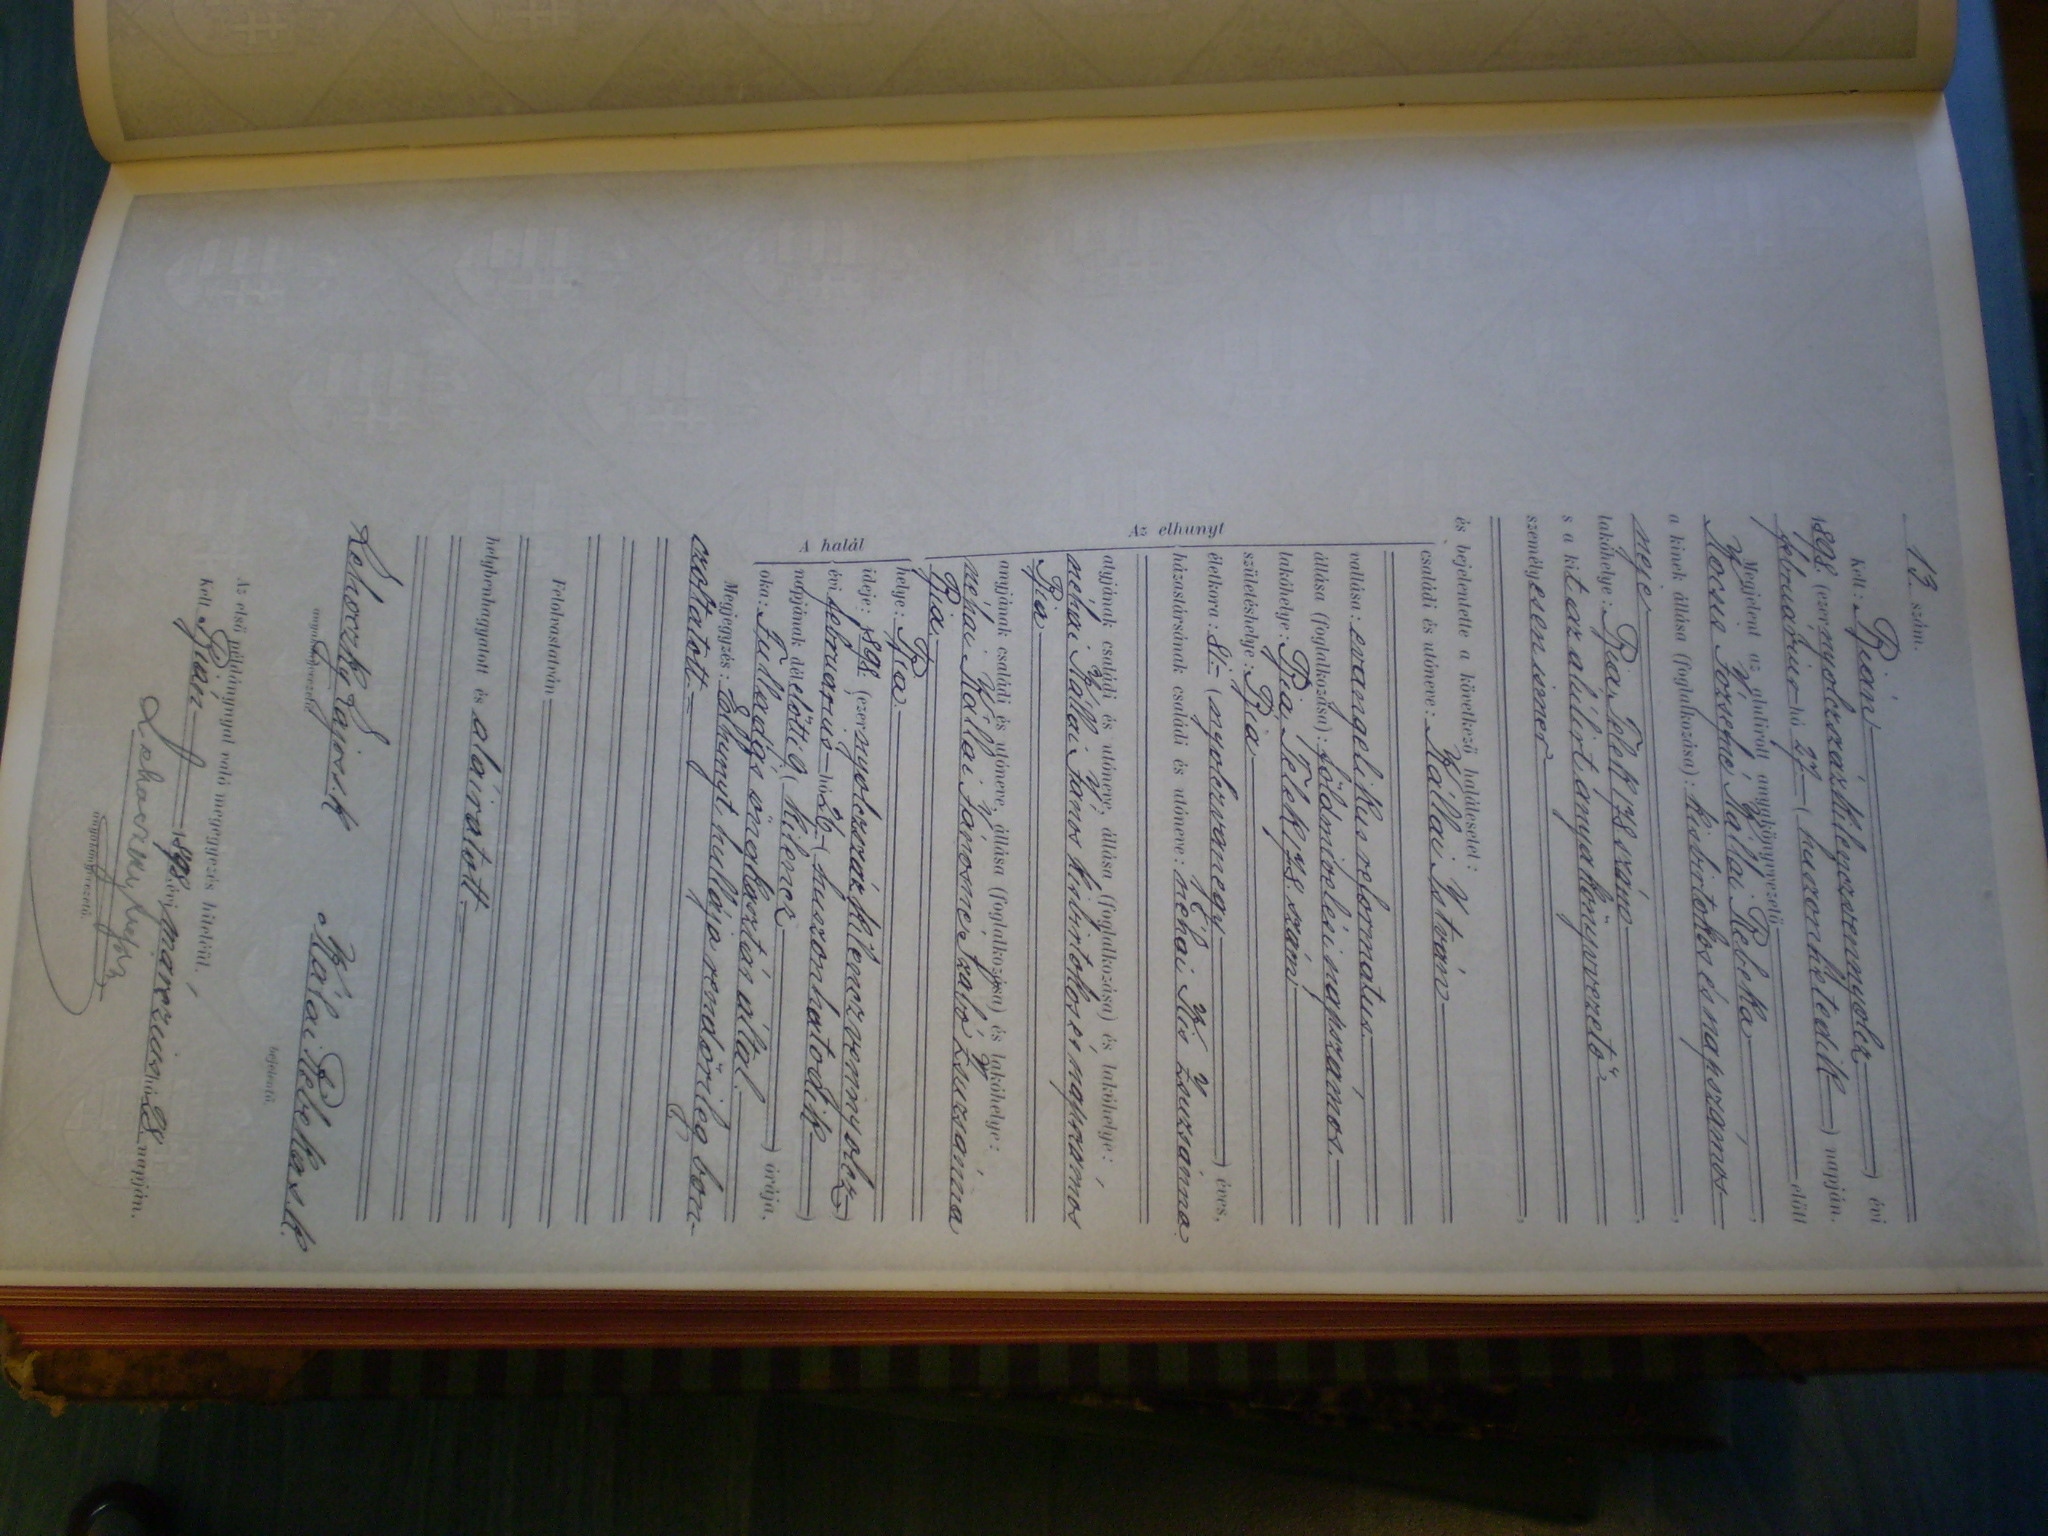 13 szám.
Kelt: Bián, 1898 (ezer nyolczszázkilenczvennyolcz) évi
február hó 27 (huszonhetedik) napján.
Megjelent az alulírott anyakönyvezető előtt
Kocsis Józsefné Kállai Rebeka
a kinek állása (foglalkozása): kisbirtokos és napszámos
neje
lakóhelye: Bia, Telek 178 szám
s a kit az alulirt anyakönyvvezető
személyesen ismer
és bejelentette a következő halálesetet:
Az elhunyt
családi és utóneve: Kállai István
vallása: evangelikus reformatus,
állása (foglalkozása): földmivelési napszámos.
lakóhelye: Bia, Telek szám,
születéshelye: Bia
életkora: 81 (nyolczvanegy) éves,
házastársának családi és utóneve: néhai Kis Zsuzsánna
atyjának családi és utóneve, állása (foglalkozása) és lakóhelye:
néhai Kállai János kisbirtokos és napszámos
Bia
anyjának családi és utóneve, állása (foglalkozása) és lakóhelye:
néhai Kállai Jánosné Szabó Zsuzsánna
Bia
A halál
helye: Bia
ideje: 1898 (ezer nyolczszázkilenczvennyolcz)
évi februárius hó 26 (huszonhatodik)
napjának délelőtti 9 (kilencz) órája,
oka: Tüdővágás önakasztás által.
Megjegyzés: Elhunyt hullája rendőrileg boncz-
czoltatott.
Felolvastatván
helybenhagyatott és aláiratott.
Lehoczky Lajos s.k.
anyakönyvvezető
Kállai Rebeka s.k.
bejelentő.
Az első példánynyal való megegyezés hiteléül.
Kelt Bián 1898. évi márczius hó 28 napján.
anyakönyvvezető.